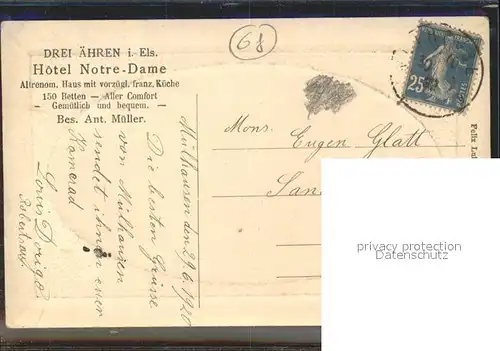 DREI ÄHREN i. Els.
Hôtel Notre-Dame
Altrenom. Haus mit vorzügl. franz. Küche
150 Betten — Aller Comfort
- Gemütlich und bequem. -
Bes. Ant. Müller.
68
25
Mons.
Eugen Glatt
San
Mülhausen den 29.6.1920
Die besten Grüsse
von Mülhausen
sendet ihnen euer
Kamerad
Louis
Felix Lu
privacy protection
ansichtskartenversand.com